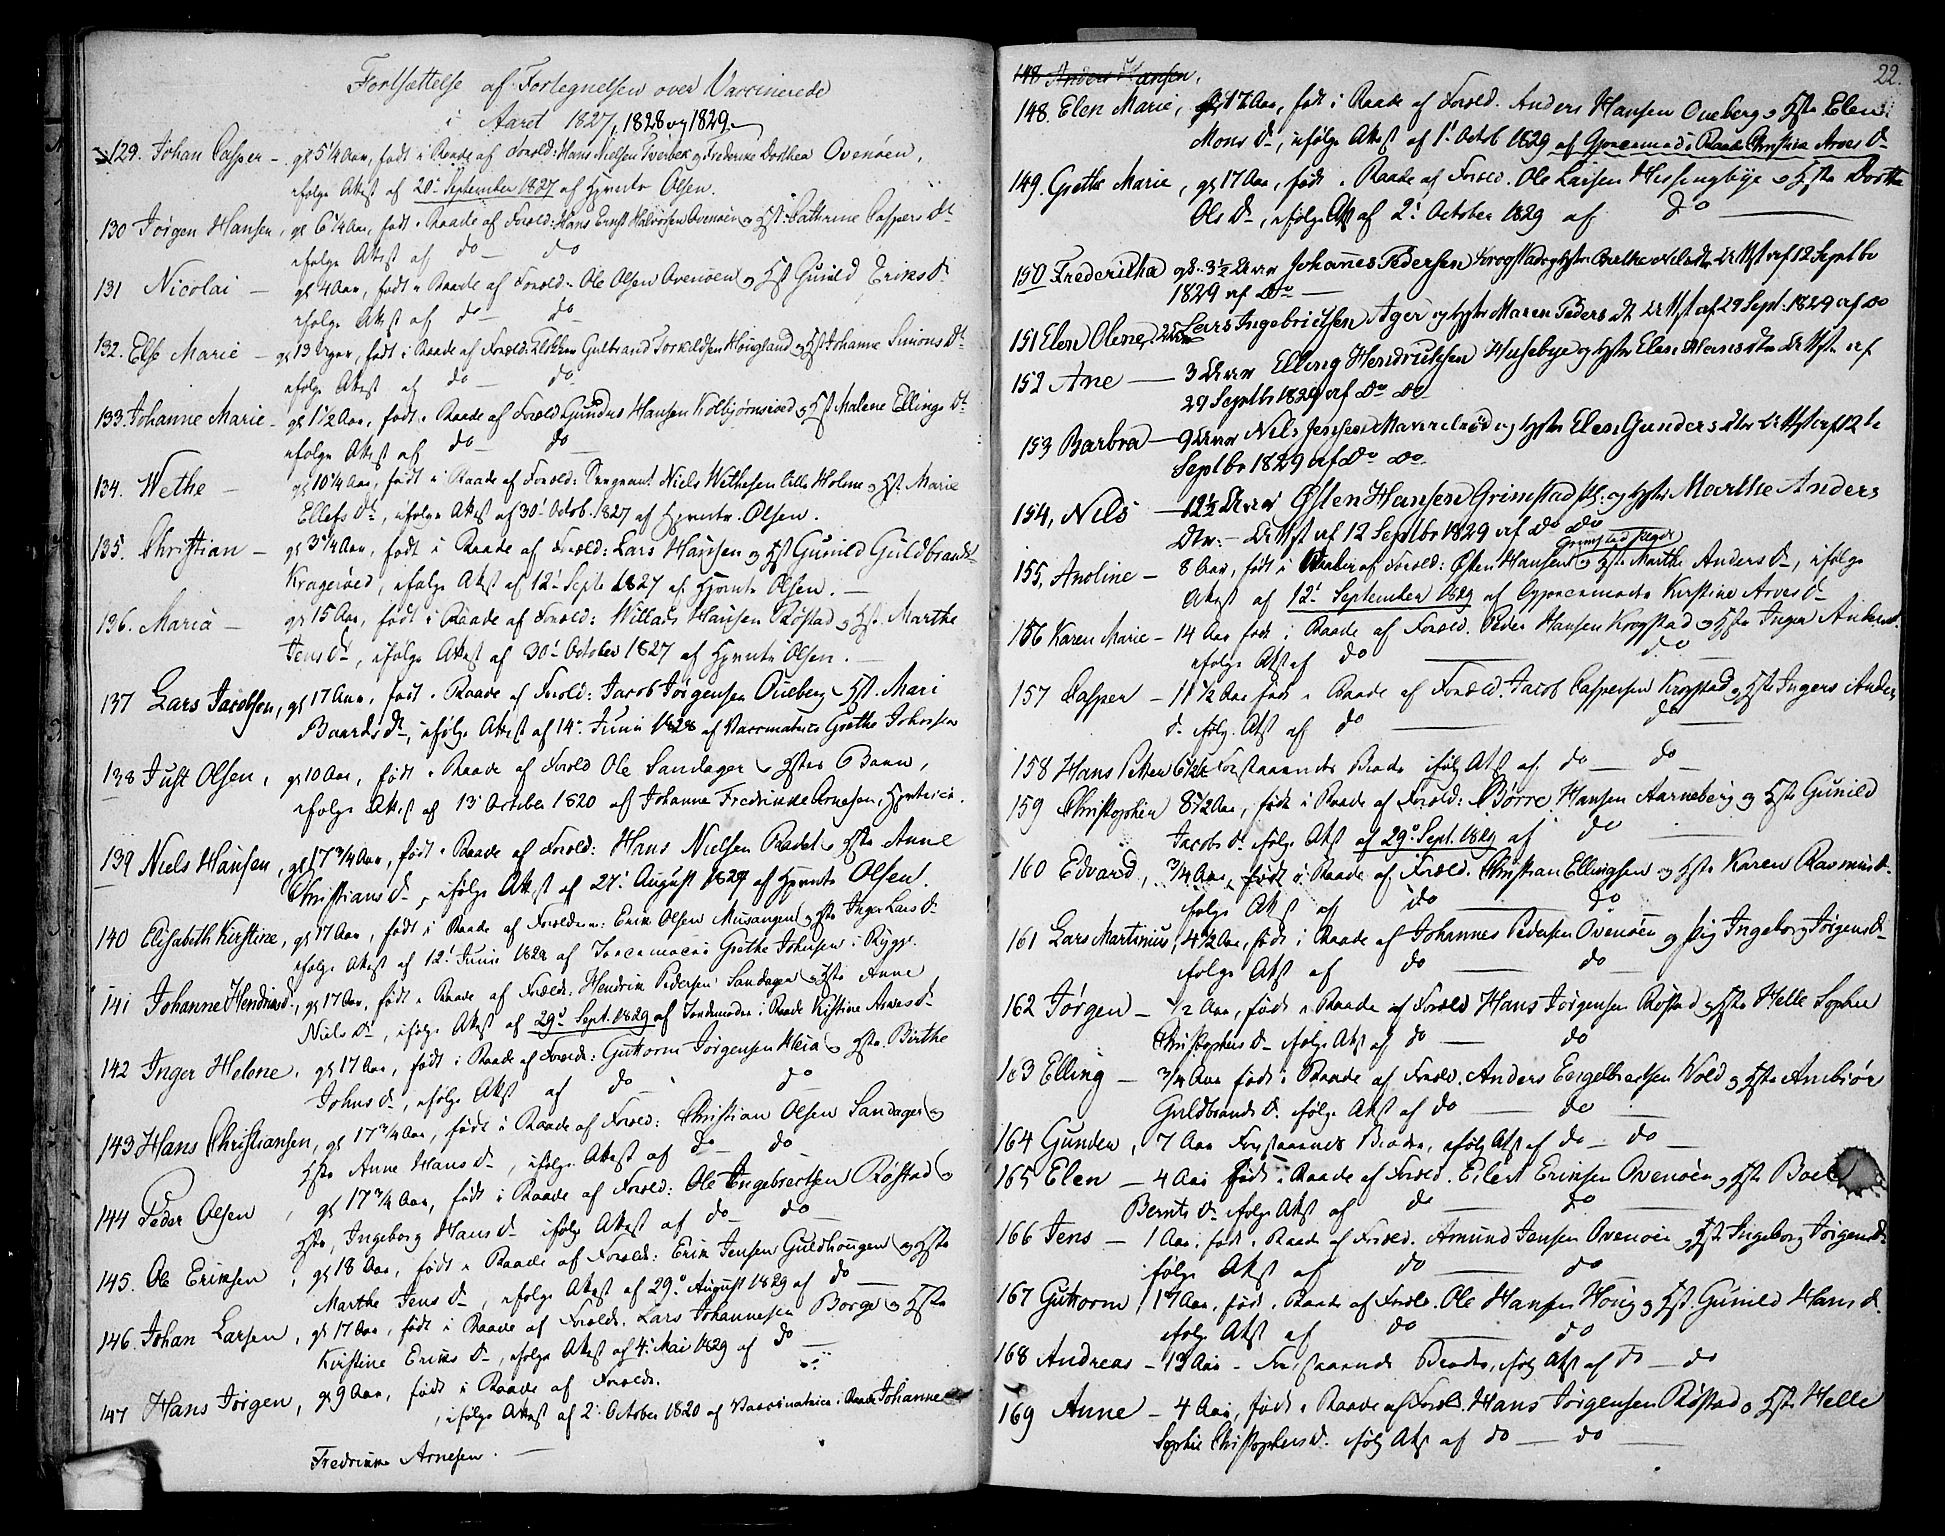 Fortsættelse af Fortegnelsen over Vaccinerede
i Aaret 1827, 1828 og 1829.
129. Johan Casper - gl 5 1/4 Aar, født i Raade af Foræld: Hans Nielsen Tverbek og Frederike Dorthea Ovenøen,
ifølge Attest af 20' September 1827 af Olsen.
130 Jørgen Hansen, gl 6 1/4 Aar, født i Raade af Foræld: Hans Ernst Halvorsen Ovenøen og Hst: Cathrine Caspers Dr
ifølge Attest af do do
131 Nicolai - gl 4 Aar, født i Raade af Foræld: Ole Olsen Ovenøen og Hst Gunild Eriks Dr
ifølge Attest af do - do
132. Else Marie - gl 13 Uger, født i Raade af Foræld: Gulbrand Torkildsen Hougland og Hst Johanne Simons Dr
ifølge Attest af do - do
133. Johanne Marie - gl 1 1/2 Aar, født i Raade af Foræld Gunder Hansen Kolbjørnsrød og Hst Malene Ellings Dr
ifølge Attest af do do
134. Wethe - gl 10 1/4 Aar, født i Raade af Foræld: Sergeant Niels Wethesen Lille Holme og Hst. Marie
Ellefs Dr, ifølge Attest af 30' Octob. 1827 af Olsen.
135. Christian - gl 3 1/4 Aar, født i Raade af Foræld: Lars Hansen og Hst Gunild Guldbrands
Kragerøed, ifølge Attest af 12' Septr 1827 af Olsen. -
136. Maria - gl 15 Aar, født i Raade af Foræld: Willads Hansen Røstad og Hst. Marthe
Jens Dr, ifølge Attest af 30' October 1827 af Olsen. -
137 Lars Jacobsen, gl 17 Aar, født i Raade af Foræld: Jacob Jørgensen Oueberg og Hst. Mari
Baards Dr, ifølge Attest af 14' Junii 1828 af Grethe Johnsen
138 Just Olsen, gl 10 Aar, født i Raade af Foræld Ole Sandager og Hstes Barn,
ifølge Attest af 13' October 1820 af Johanne Fredrikke Arnesen,
139 Niels Hansen, gl 17 3/4 Aar, født i Raade af Foræld: Hans Nielsen Raadet og Hste Anne
Christians Dr, ifølge Attest af 27' August 1827 af Olsen.
140 Elisabeth Kirstine, gl 17 Aar, født i Raade af Forældrene: Erik Olsen Musangen og Hste Inger Lars Dr
ifølge Attest af 12' Junii 1828 af Grethe Johnsen i Rygge.
141 Johanne Hendriks Dr, gl 17 Aar, født i Raade af Foræld: Hendrik Pedersen Sandager og Hste Anne
Niels Dr, ifølge Attest af 29' Sept. 1829 af Jordemoder i Raade Kirstine Arves Dr
142 Inger Helene, gl 17 Aar, født i Raade af Foræld: Guttorm Jørgensen Kleia og Hste. Birthe
Johns Dr, ifølge Attst af do - do
143 Hans Christiansen, gl 17 3/4 Aar, født i Raade af Foræld: Christian Olsen Sandager og
Hste Anne Hans Dr, ifølge Attest af do - do
144 Peder Olsen, gl 17 3/4 Aar, født i Raade af Foræld: Ole Ingebretsen Røstad og
Hste, Ingeborg Hans Dr ifølge Attest af do do
145. Ole Eriksen, gl 18 Aar, født i Raade af Foræld: Erik Jensen Guldhougen og Hste
Marthe Jens Dr, ifølge Attest af 29' August 1829 af do -
146. Johan Larsen, gl 17 Aar, født i Raade af Foræld. Lars Johannesen Borge og Hste
Kirstine Eriks Dr, ifølge Attest af 4' Mai 1829 af do -
147 Hans Jørgen, gl 9 Aar, født i Raade af Foræld.
, ifølge Attest af 2' October 1820 af Vaccinatrice i Raade Johanne
Fredrikke Arnesen. -
22.
148 Anders Hansen,
148. Elen Marie, gl 17 Aar, født i Raade af Foræld. Anders Hansen Oueberg og Hste Elen
Mons Dr, ifølge Attest af 1' Octob 1829 af Gjorremod i Raade Christine Arves Dr
149. Grethe Marie, gl 17 Aar, født i Raade af Foræld. Ole Larsen Hissingbye og Hste Dorthe
Ols Dr, ifølge Attst af 2' October 1829 af do
150 Frederikka gl. 3 1/2 Aar Johannes Pedersen Krogstad og Hstr Nilsdtr Attst af 12 Septbr
1829 af Do -
151 Elen Olene, Lars Ingebrietsen Ager og hstr Maren Peders Dtr Attst af 29 Sept. 1829 af Do
152 Ane - 3 Aar Elling Hendrichsen Husebye og hstr Elen Hansdtr Attst af
29 Septbr 1829 af Do Do
153 Barbra - 9 Aar Nils Jensen og hstr Elen Gundersdtr Attst af 12te
Septbr 1829 af Do Do.
154, Nils - 12 1/2 Aar Østen Hansen Grimstad pl: og hstr Marthe Anders
Dtr. - Attst af 12 Septbr 1829 af Do Do
155. Anoline - 8 Aar, født i Raade af Foræld: Østen Hansen Grimstad og Hste Marthe Anders Dr, ifølge
Attest af 12' September 1829 af Kirstine Arves Dr
156 Karen Marie - 14 Aar født i Raade af Foræld. Peder Hansen Krogstad og Hste Inger Anders Dr
ifølge Attst af do - do
157 Casper - 11 1/2 Aar født i Raade af Foræld. Jacob Caspersen Krogstad og Hste Ingers Anders
D. ifølg. Attst af do - do
158 Hans Petter 6 1/2 Forstaaende Broder ifølg Attst af do - do -
159 Christopher 8 1/2 Aar, født i Raade af Foræld: Børre Hansen Aarneberg og Hste Gunild
Jacobs Dr ifølge Attst af 29' Sept. 1829 af do
160 Edvard, 3/4 Aar, født i Raade af Foræld. Christian Ellingsen og Hste Karen Rasmus Dr
ifølge Attst af do - do
161 Lars Martinius, 4 1/2 Aar, født i Raade af Johannes Pedersen Ovenøen og pig Ingeborg Jørgens Dr
ifølge Attst af do - do
162 Jørgen - 1/2 Aar, født i Raade af Foræld Hans Jørgensen Røstad og Hste Helle Sophie
Christophers Dr ifølge Attst af do - do
163 Elling - 3/4 Aar født i Raade af Foræld. Anders Engelbretsen Wold og Hste Ambiør
Guldbrands D. ifølge Attst af do - do -
164 Gunder, 7 Aar Forstaaende Broder, ifølg Attst af do - do -
165 Elen - 4 Aar født i Raade af Foræld. Eilert Eriksen Ovenøen og Hste Boel
Bernts Dr ifølge Attst af do - do
166 Jens - 1 Aar, født i Raade af Foræld. Amund Jensen Ovenøen og Hste Ingeborg Jørgens Dr
ifølge Attst af do - do
167 Guttorm, 17 Aar, født i Raade af Foræld. Ole Hansen Houg og Hst. Gunild Hans D.
ifølge Attst af do - do
168 Andreas - 13 Aar - Forstaaende Broder, ifølg Attst af do - do
169 Anne - 4 Aar, født i Raade af Foræld. Hans Jørgensen Røstad og Hste Helle
Sophie Christophers D. ifølg Attst af do - do -